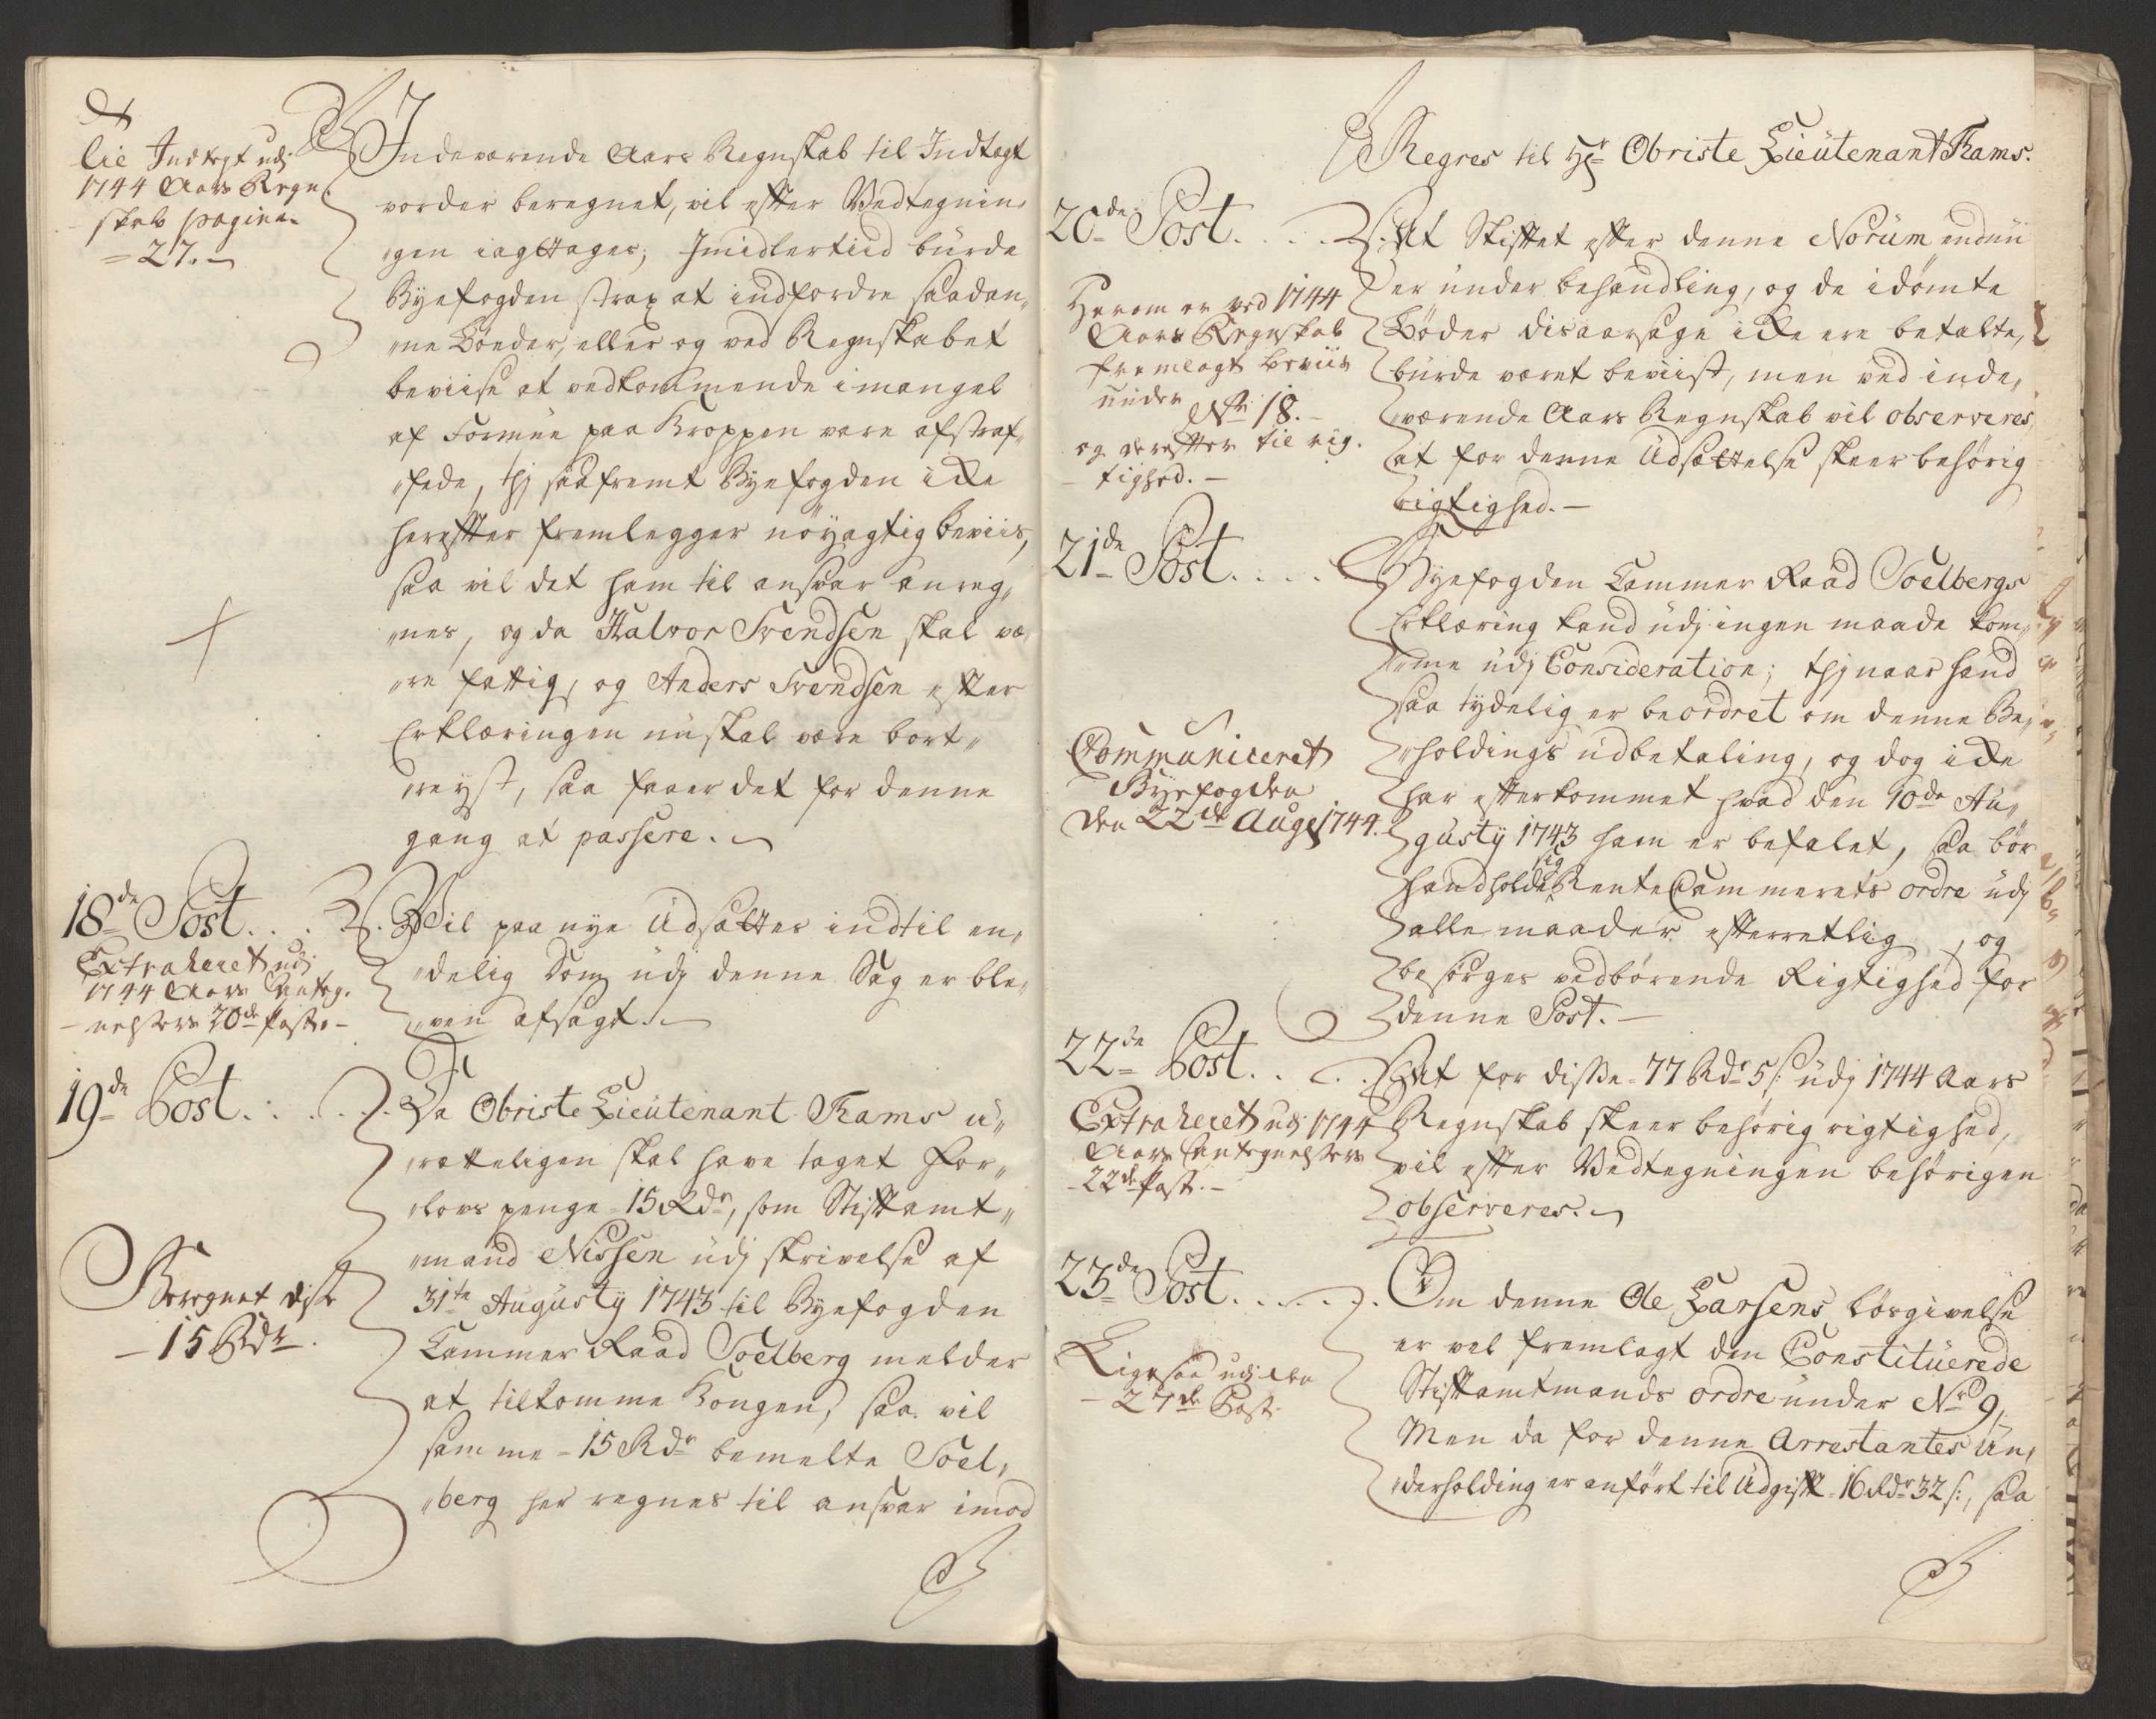 til Indtegt udj
1744 Aars Regn-
skab pagina
27.
Indeværende Aars Regnskab til Indtægt
vorder beregnet, vil efter Vedtegnin-
gen iagttages; Imidlertiid burde
Byefogden strax at indfordre saadan-
ne Bøeder, eller og ved Regnskabet
beviise at vedkommende i mangel
af Formue paa Kroppen vare afstraf-
fede, thj saafremt Byefogden icke
herefter fremlegger nöyagtig beviis,
saa vil det ham til ansvar anreg-
nes, og da Halvor Svendsen skal væ-
re fattig, og Anders Svendsen efter
Erklæringen nu skal være bort-
reyst, saa faaer det for denne
gang at passere.
18de Post. . .
Extraheret udj
1744 Aars Anteg-
nelsers 20de Post.
Vil paa nye Udsættes indtil en-
delig Dom udj denne Sag er ble-
ven afsagt.
19de Post. . . . .
Beregnet disse
15 Rdr.
Da Obriste Lieutenant Rams u-
retteligen skal have taget For-
lovs penge 15 Rdr, som Stiftamt-
mand Nissen udj skrivelse af
31te Augusty 1743 til Byefogden
Cammer Raad Soelberg melder
at tilkomme Kongen, saa vil
samme 15 Rdr bemelte Soel-
berg her regnes til ansvar imod
Regres til Hr Obriste Lieutenant Rams.
20de Post. . . .
Herom er ved 1744
Aars Regnskab
fremlagt beviis
under
No 18.
og derefter til rig-
tighed.
At Skiftet efter denne Norum endnu
er under behandling, og de idømte
Bøder disaarsage icke ere betalte,
burde været beviist, men ved inde-
værende Aars Regnskab vil observeres,
at for denne Udsættelse skeer behörig
rigtighed.
21de Post. . . .
Communiceret
Byefogden
den 22de Aug 1744.
Byefogden Cammer Raad Soelbergs
Erklæring kand udj ingen maade kom-
me udj Consideration; thj naar hand
saa tydelig er beordret om denne Be-
holdings udbetaling, og dog icke
har efterkommet hvad den 10de Au-
gusty 1743 ham er befalet, saa bør
hand holde sig RenteCammerets ordre udj
alle maader efterretlig, og
besørges vedbørende Rigtighed for
denne Post.
22de Post. . . . .
Extraheret udj 1744
Aars Antegnelsers
22de Post.
At for disse 77 Rdr 5 s: udj 1744 Aars
Regnskab skeer behørig rigtighed,
vil efter Vedtegningen behørigen
observeres.
23de Post. . . . .
Ligesaa udj den
27de Post.
Om denne Ole Larsens løsgivelse
er vel fremlagt den Constituerede
Stiftamtmands ordre under No 9,
Men da for denne Arrestantes Un-
derholding er anført til Udgift 16 Rdr 32 s:, saa